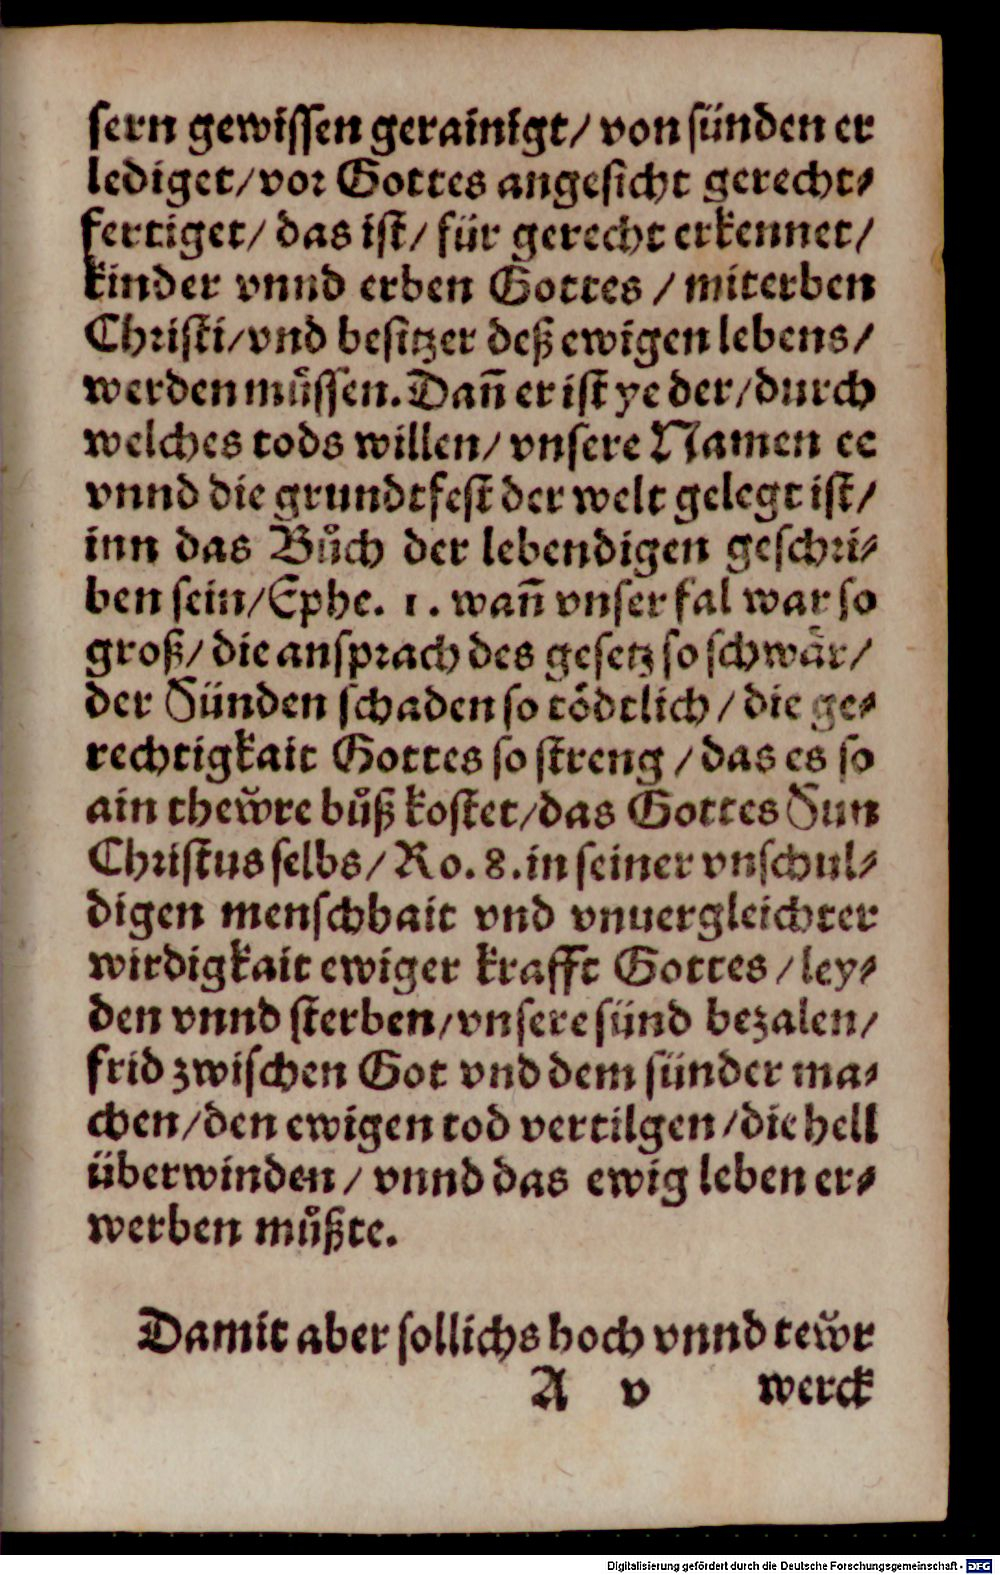 sern gewissen gerainigt/ von sünden er
lediget/vor Gottes angesicht gerecht⸗
fertiget/ das ist/ für gerecht erkennet/
kinder vnnd erben Gottes / miterben
Christi/vnd besitzer deß ewigen lebens/
werden müssen. Dañ er ist ye der/durch
welches tods willen/ vnsere Namen ee
vnnd die grundtfest der welt gelegt ist/
inn das Bůch der lebendigen geschri⸗
ben sein/Ephe. 1. wañ vnser fal war so
groß/ die ansprach des gesetz so schwår/
der Sünden schaden so tödtlich / die ge⸗
rechtigkait Gottes so streng / das es so
ain thewre bůß kostet/das Gottes Sun
Christus selbs/ Ro. 8. in seiner vnschul⸗
digen menschhait vnd vnuergleichter
wirdigkait ewiger krafft Gottes / ley⸗
den vnnd sterben/vnsere sünd bezalen/
frid zwischen Got vnd dem sünder ma⸗
chen/den ewigen tod vertilgen/die hell
überwinden / vnnd das ewig leben er⸗
werben můßte.
Damit aber sollichs hoch vnnd tewr
A v werck
Digitalisierung gefördert durch die Deutsche Forschungsgemeinschaft - DFG